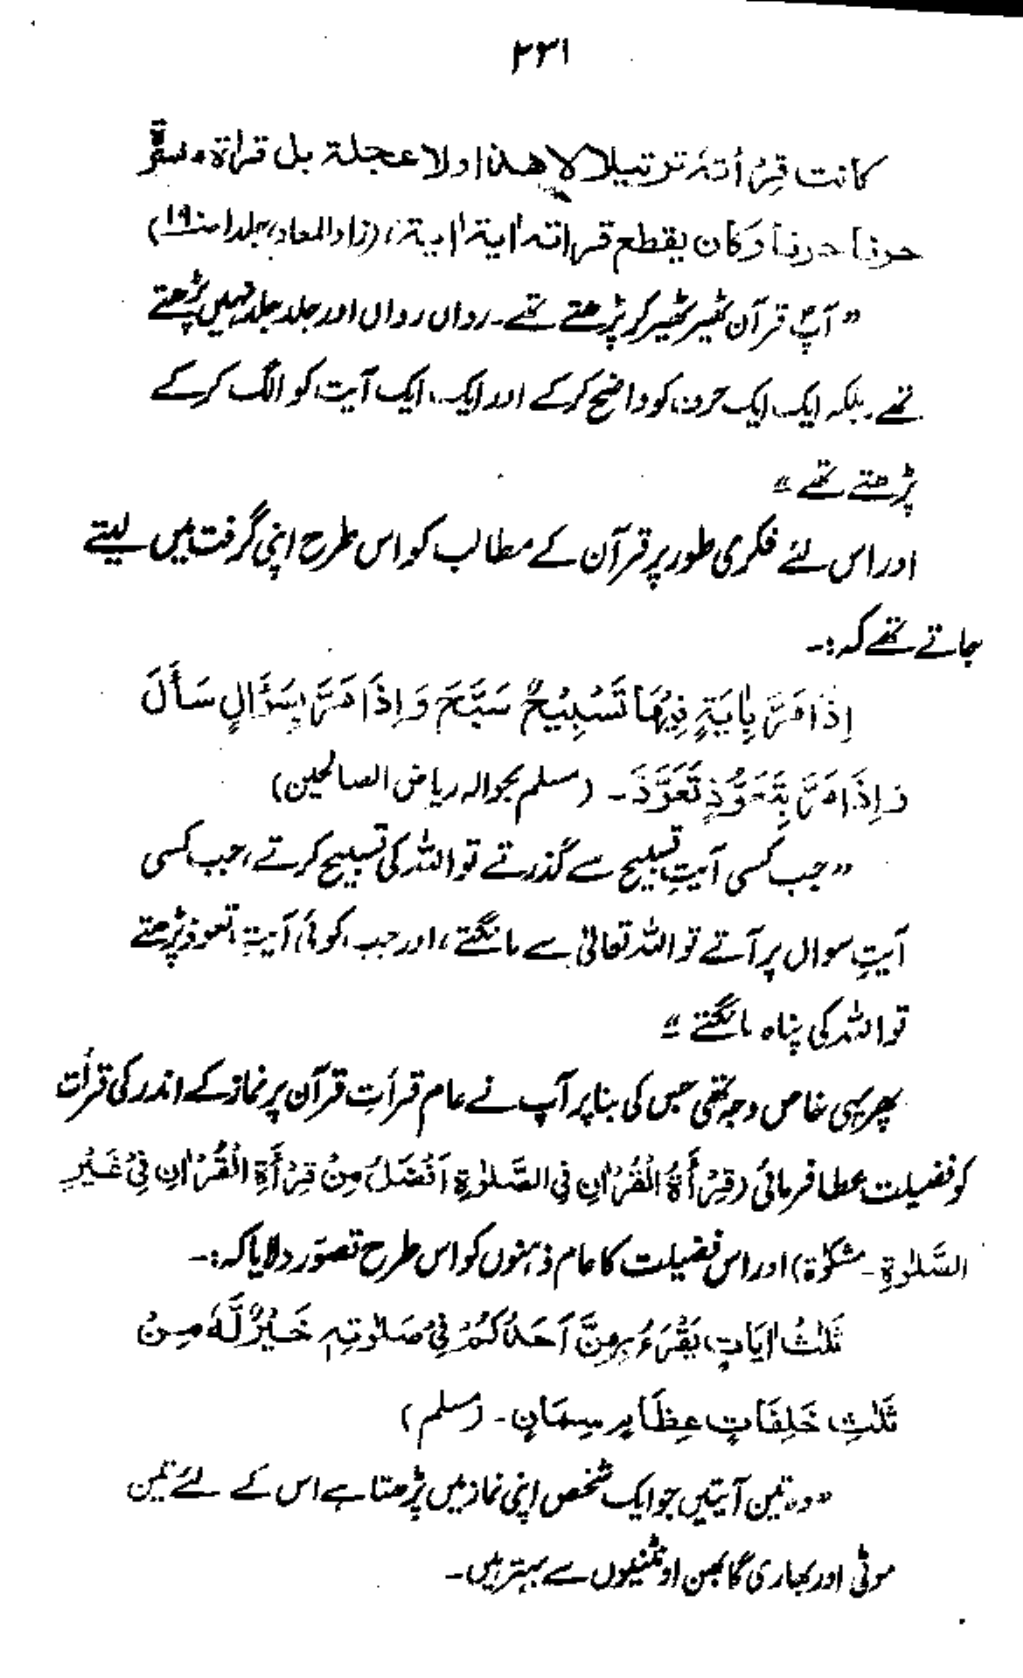 ۲۳۱
کانت قرأتہٗ ترتیلا لا ھذا ولا عجلة بل قراة مفسرة
حرفا حرفا وکان یقطع قراتہ اٰیة اٰیة، (زاد المعاد، جلد ۱ ص ۱۹)
”آپؐ قرآن ٹھیر ٹھیر کر پڑھتے تھے۔ رواں رواں اور جلد جلد نہیں پڑھتے
تھے۔ بلکہ ایک ایک حرف کو واضح کرکے اور ایک ایک آیت کو الگ کرکے
پڑھتے تھے“
اور اس لئے فکری طور پر قرآن کے مطالب کو اس طرح اپنی گرفت میں لیتے
جاتے تھے کہ :۔
اِذَا مَرَّ بِاٰیَۃٍ فِیْهَا تَسْبِیْحٌ سَبَّحَ وَ اِذَا مَرَّ بِسُؤَالٍ سَأَلَ
وَ اِذَا مَرَّ بِتَعَوُّذٍ تَعَوَّذَ۔ (مسلم بحوالہ ریاض الصالحین)
”جب کسی آیتِ تسبیح سے گذرتے تو اللہ کی تسبیح کرتے، جب کسی
آیتِ سوال پر آتے تو اللہ تعالیٰ سے مانگتے، اور جب کوئی آیتِ تعوذ پڑھتے
تو اللہ کی پناہ مانگتے“
پھر یہی خاص وجہ تھی جس کی بنا پر آپ نے عام قرأتِ قرآن پر نماز کے اندر کی قرأت
کو فضیلت عطا فرمائی (قِرْأَۃُ الْقُرْاٰنِ فِی الصَّلٰوۃِ اَفْضَلُ مِنْ قِرْأَۃِ الْقُرْاٰنِ فِیْ غَیْرِ
الصَّلٰوۃِ۔ مشکوٰۃ) اور اس فضیلت کا عام ذہنوں کو اس طرح تصوّر دلایا کہ :۔
ثَلٰثُ اٰیَاتٍ یَقْرَءُ بِهِنَّ اَحَدُکُمْ فِیْ صَلٰوتِهٖ خَیْرٌ لَّهٗ مِنْ
ثَلٰثِ خَلِفَاتٍ عِظَامٍ سِمَانٍ۔ (مسلم)
”وہ تین آیتیں جو ایک شخص اپنی نماز میں پڑھتا ہے اس کے لئے تین
موٹی اور بھاری گابھن اونٹنیوں سے بہتر ہیں۔